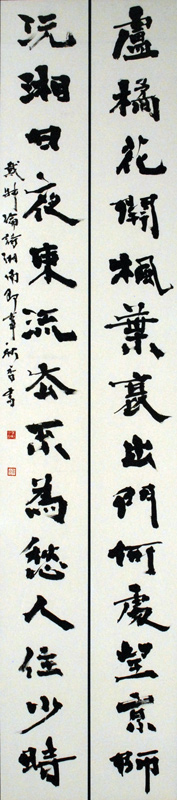 盧橘花開楓葉衰出門何處望京師
沅湘日夜東流去不為愁人住少時
戴叔倫詩湘南即事 書